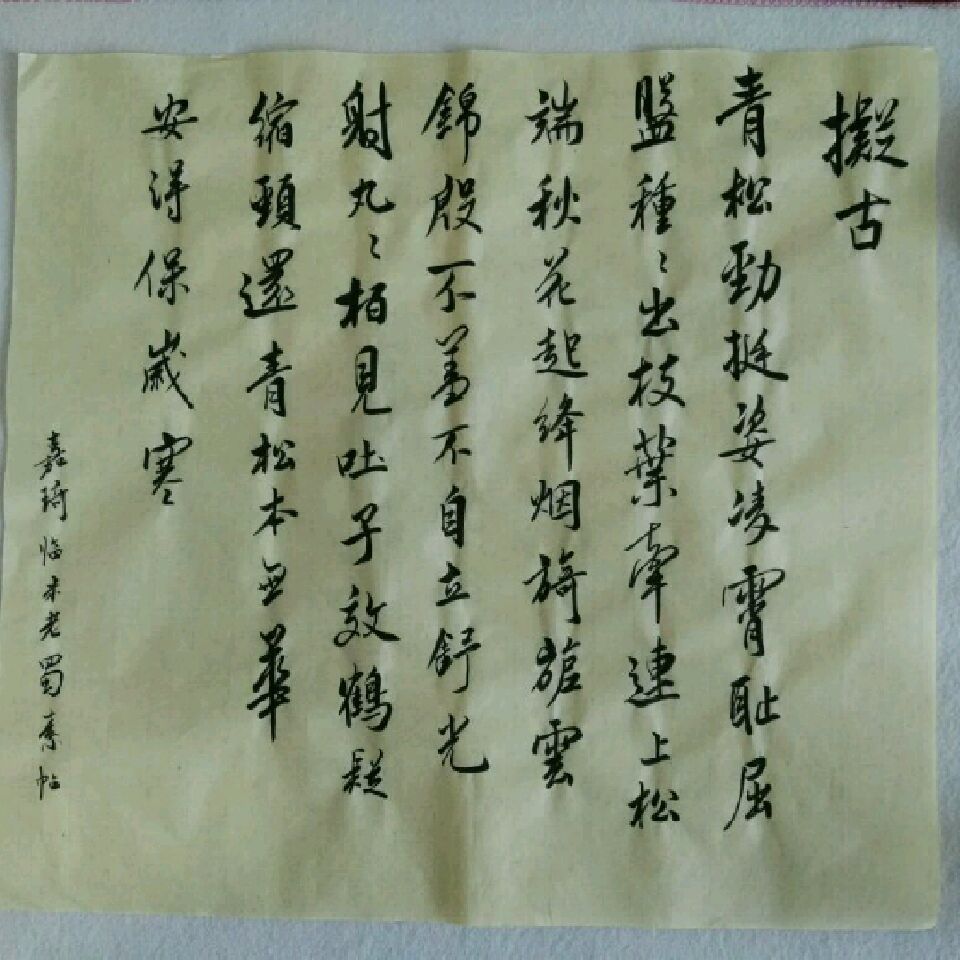 擬古
青松勁挺姿凌霄耻屈
盤種〻出枝葉牽連上松
端秋花起絳烟旖旎雲
錦殷不羞不自立舒光
射丸〻柏見吐子效鶴疑
縮頸還青松本無華
安得保歲寒
嘉琦临米老蜀素帖